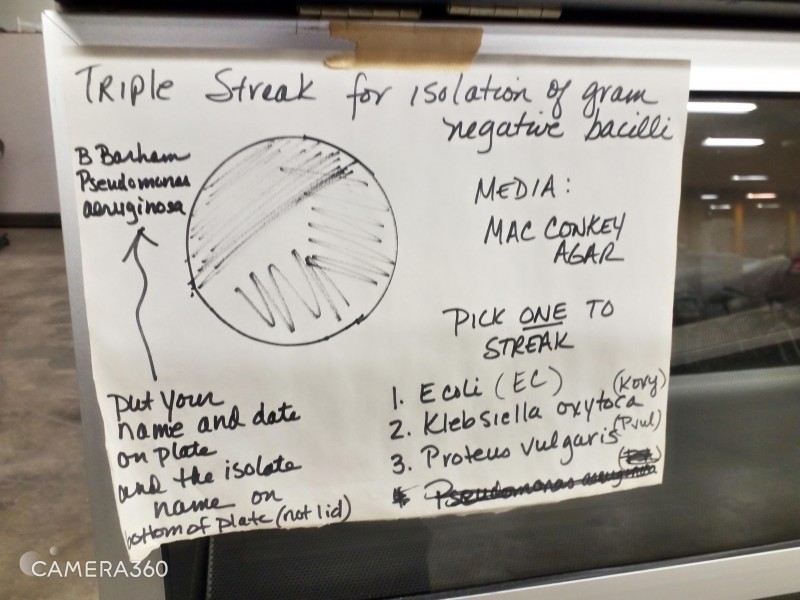 TRIPLE Streak for isolation of gram
negative bacilli
B Barham
Pseudomonas
aeruginosa
MEDIA:
MAC CONKEY
AGAR
PICK ONE TO
STREAK
1. E coli (EC)
2. Klebsiella oxytoca (Koxy)
3. Proteus vulgaris (Pvul)
Pseudomonas aeruginosa
put your
name and date
on plate
and the isolate
name on
bottom of plate (not lid)
CAMERA360